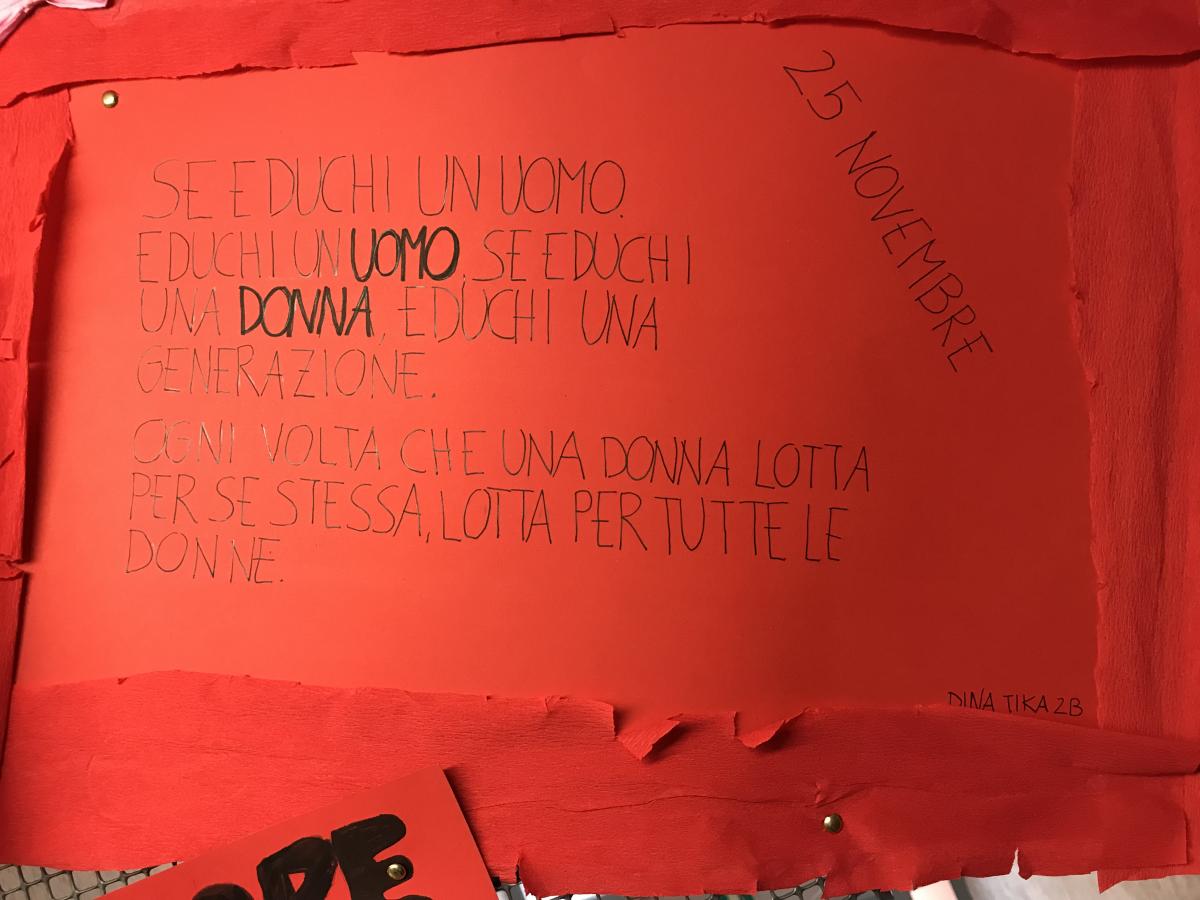 25 NOVEMBRE
SE EDUCHI UN UOMO.
EDUCHI UN UOMO, SE EDUCHI
UNA DONNA, EDUCHI UNA
GENERAZIONE.
OGNI VOLTA CHE UNA DONNA LOTTA
PER SE STESSA, LOTTA PER TUTTE LE
DONNE.
DINA TIKA 2B